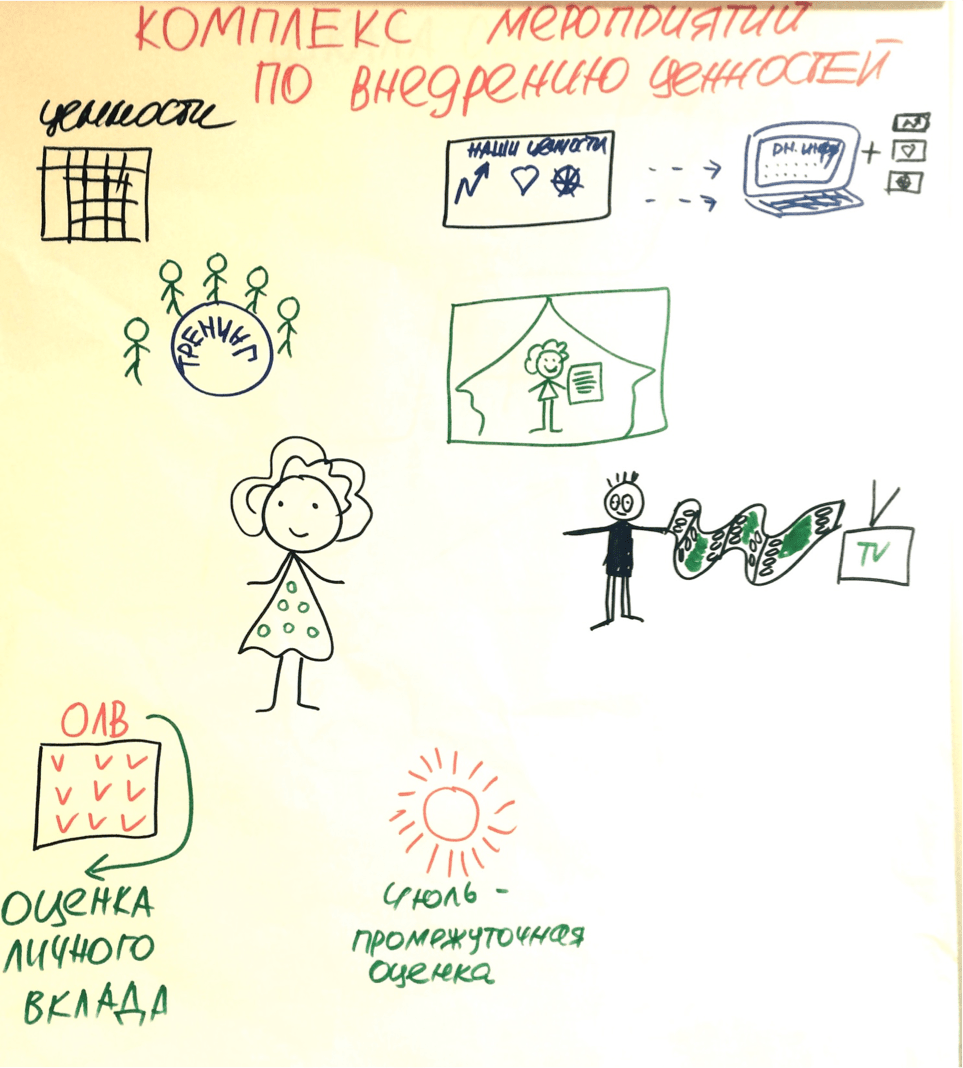 КОМПЛЕКС МЕРОПРИЯТИЙ
ПО ВНЕДРЕНИЮ ЦЕННОСТЕЙ
ЦЕННОСТИ
НАШИ ЦЕННОСТИ
+
ТРЕНИНГ
TV
ОЛВ
ОЦЕНКА
ЛИЧНОГО
ВКЛАДА
ИЮЛЬ -
ПРОМЕЖУТОЧНАЯ
ОЦЕНКА